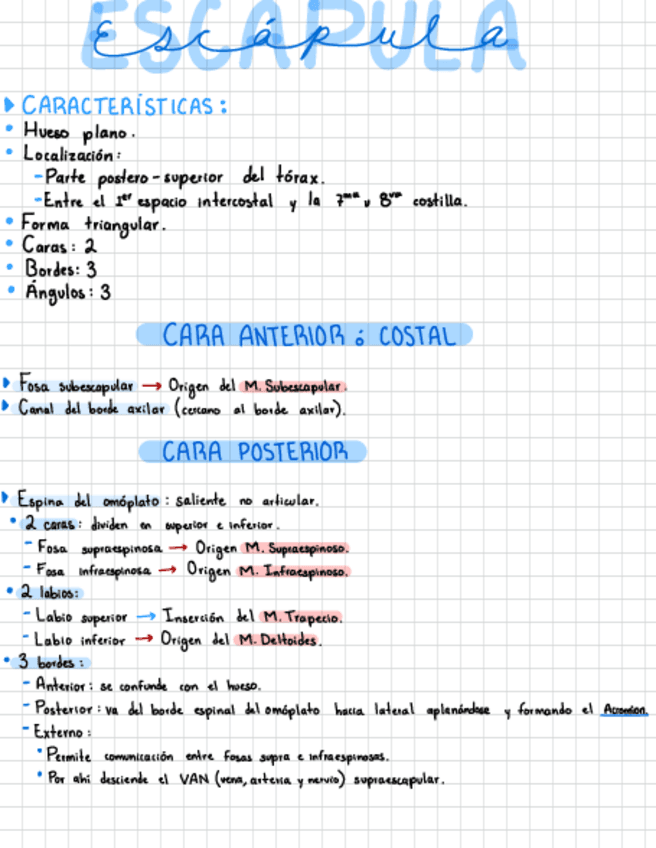 ESCÁPULA
Escápula
CARACTERÍSTICAS:
Hueso plano.
Localización:
-Parte postero-superior del tórax.
-Entre el 1er espacio intercostal y la 7ma u 8va costilla.
Forma triangular.
Caras: 2
Bordes: 3
Ángulos: 3
CARA ANTERIOR ó COSTAL
Fosa subescapular → Origen del M. Subescapular.
Canal del borde axilar (cercano al borde axilar).
CARA POSTERIOR
Espina del omóplato: saliente no articular.
2 caras: dividen en superior e inferior.
- Fosa supraespinosa → Origen M. Supraespinoso.
- Fosa infraespinosa → Origen M. Infraespinoso.
2 labios:
- Labio superior → Inserción del M. Trapecio.
- Labio inferior → Origen del M. Deltoides.
3 bordes:
- Anterior: se confunde con el hueso.
- Posterior: va del borde espinal del omóplato hacia lateral aplanándose y formando el Acromion.
- Externo:
Permite comunicación entre fosas supra e infraespinosas.
Por ahí desciende el VAN (vena, arteria y nervio) supraescapular.